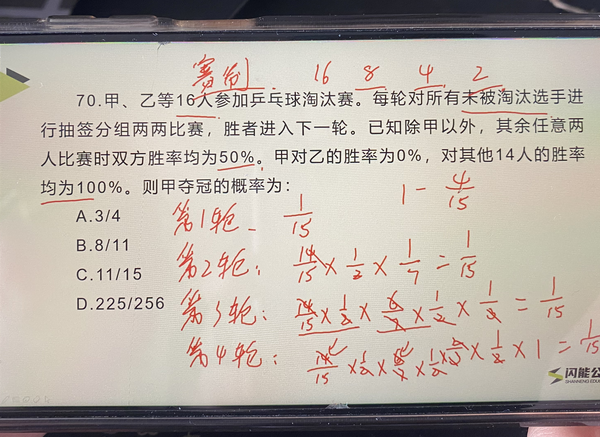 赛制. 16 8 4 2
70.甲、乙等16人参加乒乓球淘汰赛。每轮对所有未被淘汰选手进
行抽签分组两两比赛，胜者进入下一轮。已知除甲以外，其余任意两
人比赛时双方胜率均为50%。甲对乙的胜率为0%，对其他14人的胜率
均为100%。则甲夺冠的概率为：
1 - 4/15
A.3/4
第1轮 - 1/15
B.8/11
第2轮: 14/15 × 1/2 × 1/7 = 1/15
C.11/15
第3轮: 14/15 × 1/2 × 6/7 × 1/2 × 1/3 = 1/15
D.225/256
第4轮: 14/15 × 1/2 × 6/7 × 1/2 × 2/3 × 1/2 × 1 = 1/15
闪能公
SHANNENG EDU